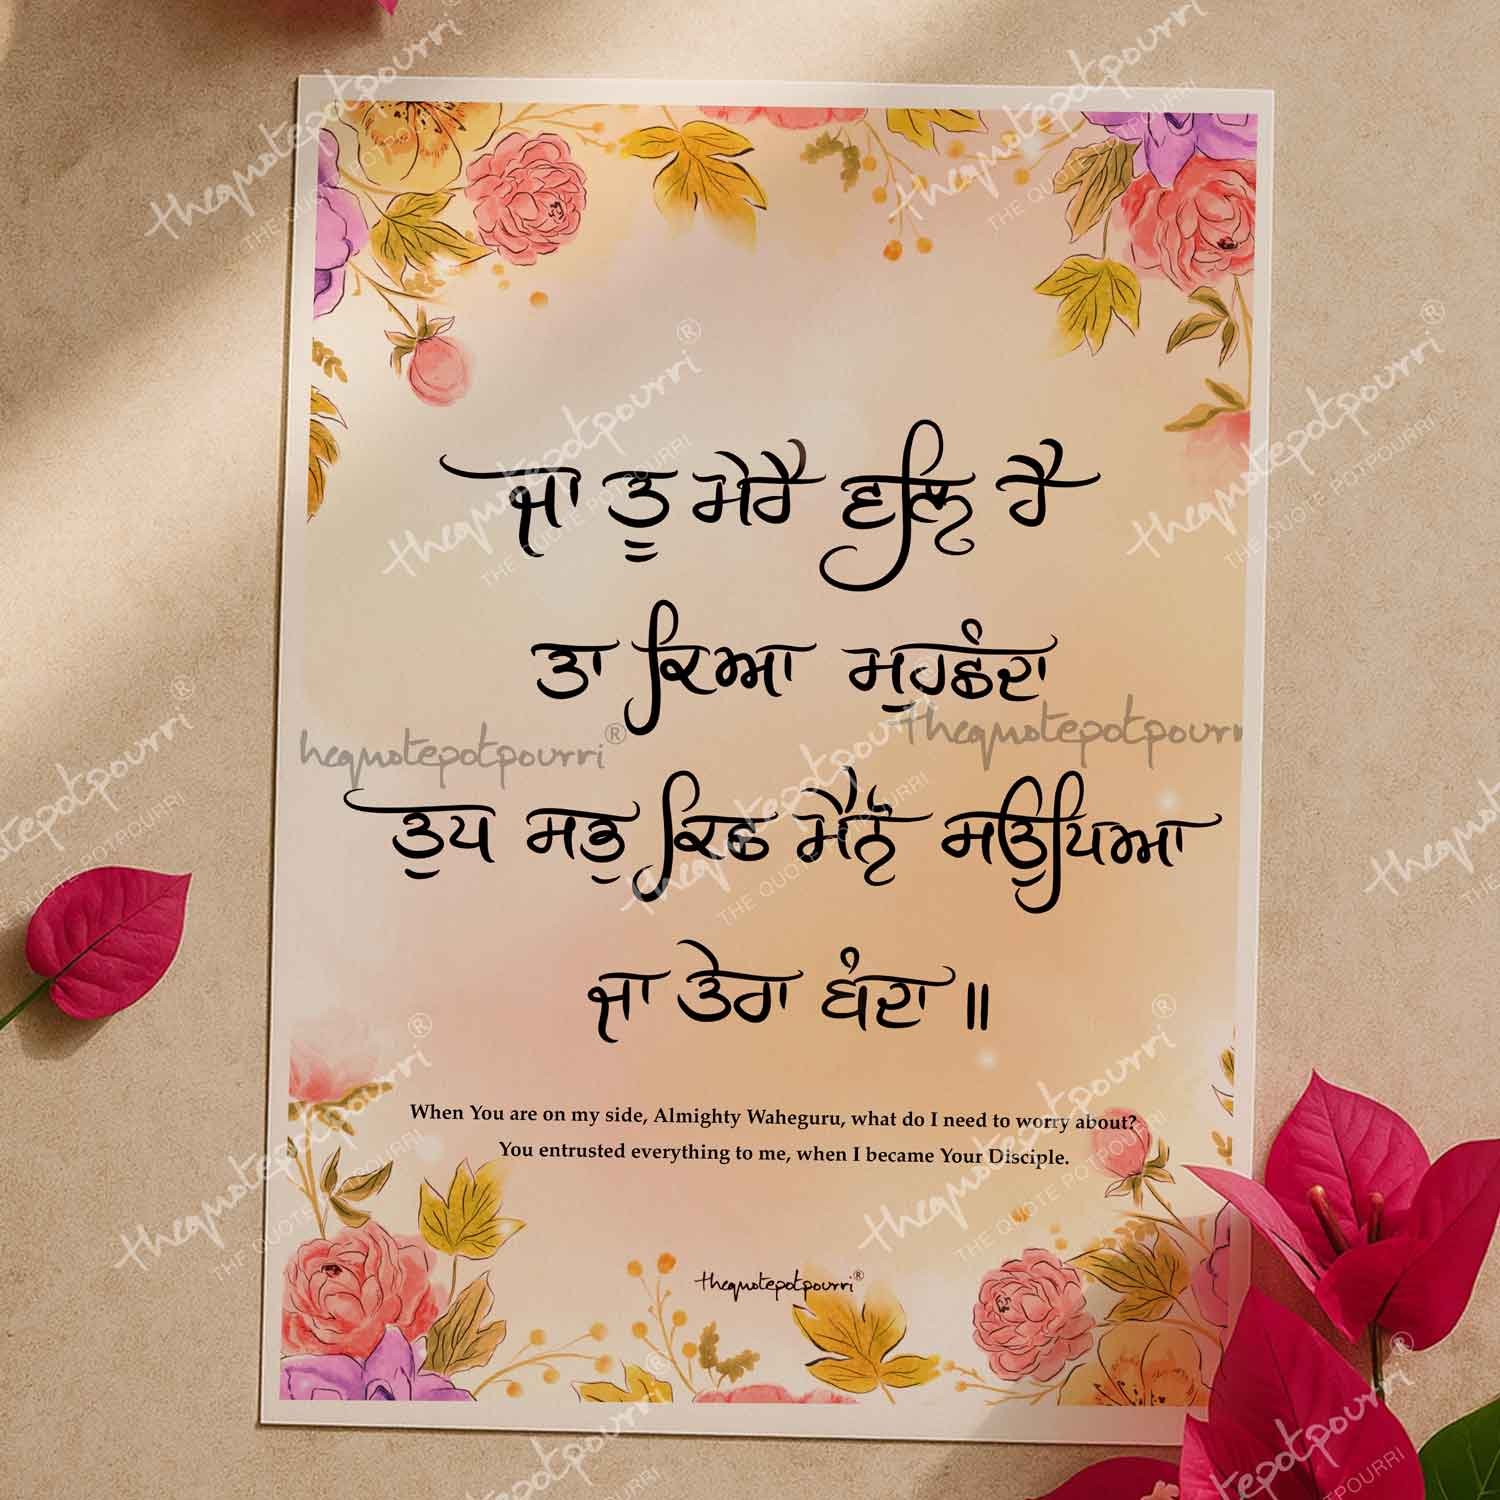 ਜਾ ਤੂ ਮੇਰੈ ਵਲਿ ਹੈ
ਤਾ ਕਿਆ ਮੁਹਛੰਦਾ
ਤੁਧ ਸਭੁ ਕਿਛ ਮੈਨੋ ਸਊਪਿਆ
ਜਾ ਤੇਰਾ ਬੰਦਾ ॥
When You are on my side, Almighty Waheguru, what do I need to worry about?
You entrusted everything to me, when I became Your Disciple.
thequotepotpourri®